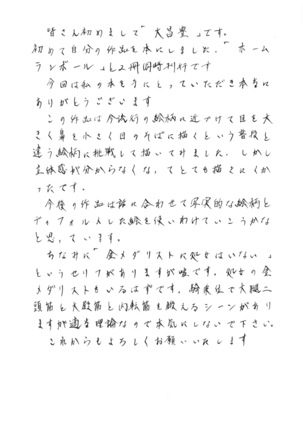 皆さん初めまして「大昌堂」です。
初めて自分の作品を本にしました。「ホーム
ランボール」と2冊同時刊行です
今回は私の本を手にとっていただき本当に
ありがとうございます
この作品は今流行の絵柄に近づけて目を大
きく鼻を小さく目のそばに描くという普段と
違う絵柄に挑戦して描いてみました。しかし
立体感が分からなくな、てとても描きにくか
ったです。
今後の作品は話に合わせて写実的な絵柄と
ディフォルメした絵を使いわけていこうかな
と思っています。
ちなみに「金メダリストに処女はいない」
というセリフがありますが嘘です。処女の金
メダリストもいるはずです。騎乗位で大腿二
頭筋と大殿筋と内転筋を鍛えるシーンがあり
ますが適当理論なので本気にしないで下さい。
これからもよろしくお願いいたします